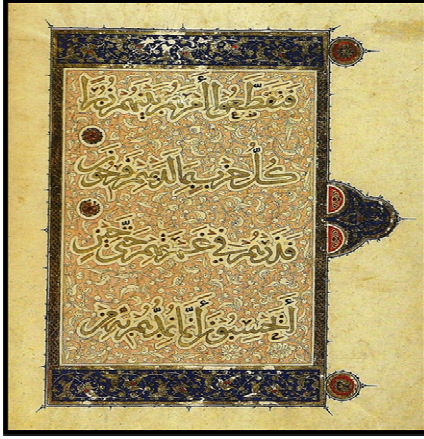 فتقطعوا أمرهم بينهم زبرا
كل حزب بما لديهم فرحون
فذرهم في غمرتهم حتى حين
أيحسبون أنما نمدهم به من